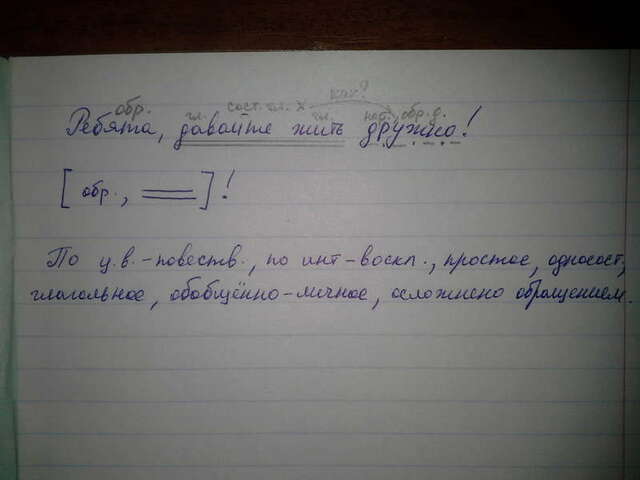 как?
обр. сост. гл. х
гл. гл. нар., обр. д.
Ребята, давайте жить дружно!
[ обр., ══ ]!
По ц.в.-повеств., по инт-воскл., простое, односост,
глагольное, обобщённо-личное, осложнено обращением.